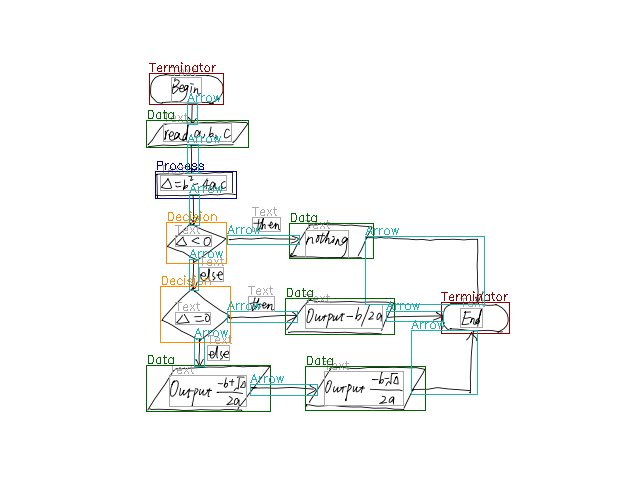 Terminator
Text
Begin
Arrow
Data
Text
read a, b, c
Arrow
Process
Text
Δ=b²-4ac
Arrow
Decision
Text
Δ<0
Arrow
Text
then
Data
Text
nothing
Arrow
Arrow
Text
else
Decision
Text
Δ=0
Arrow
Text
then
Data
Text
Output -b/2a
Arrow
Terminator
Text
End
Arrow
Text
else
Data
Text
Output (-b+√Δ)/2a
Arrow
Data
Text
Output (-b-√Δ)/2a
Arrow